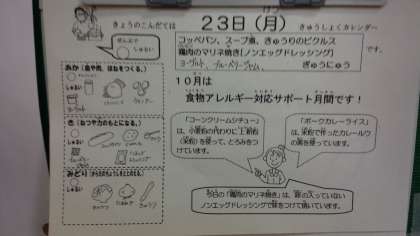 きょうのこんだては
23日（月）
げつ
きゅうしょくカレンダー
コッペパン、スープ煮、きゅうりのピクルス
鶏肉のマリネ焼き（ノンエッグドレッシング）
ヨーグルト、ブルーベリージャム
ぎゅうにゅう
です。
しゅるい
あか（血や肉、ほねをつくる。）
しゅるい
ヨーグルト
ウインナー
き（ねつや力のもとになる。）
しゅるい
みどり（からだのちょうしをととのえる）
しゅるい
キャベツ
たまねぎ
きゅうり
10月は
食物アレルギー対応サポート月間です！
「コーンクリームシチュー」
は、小麦粉の代わりに上新粉
（米粉）を使って、とろみをつ
けています。
「ポークカレーライス」
は、米粉で作ったカレールウ
の素を使っています。
今日の「鶏肉のマリネ焼き」は、卵の入っていない
ノンエッグドレッシングで味をつけて焼いています。